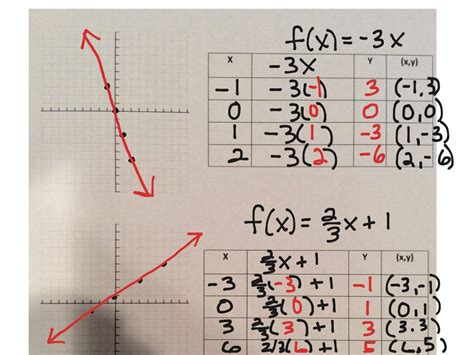 f(x) = -3x
X -3x Y (x,y)
-1 -3(-1) 3 (-1,3)
0 -3(0) 0 (0,0)
1 -3(1) -3 (1,-3)
2 -3(2) -6 (2,-6)
f(x) = 2/3x + 1
X 2/3x + 1 Y (x,y)
-3 2/3(-3) + 1 -1 (-3,-1)
0 2/3(0) + 1 1 (0,1)
3 2/3(3) + 1 3 (3,3)
6 2/3(6) + 1 5 (6,5)